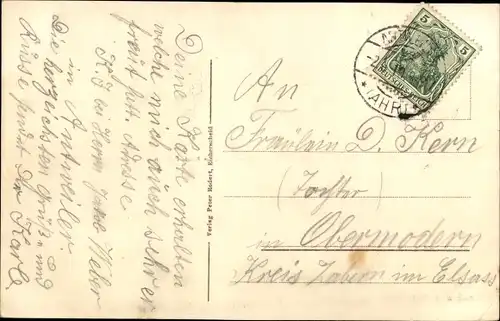 Deine Karte erhalten
welche mich auch sehr er
freut hatt Adresse
K. J bei Herrn Jakob Weber
in Antweiler
Die herzgechsten Grüße und
Küsse sendet Dir Karl
Verlag Peter Rickert,
5
5
(AHR)
An
Fräulein D. Kern
(Tochter)
in Obermodern
Kreis Zabern im Elsass